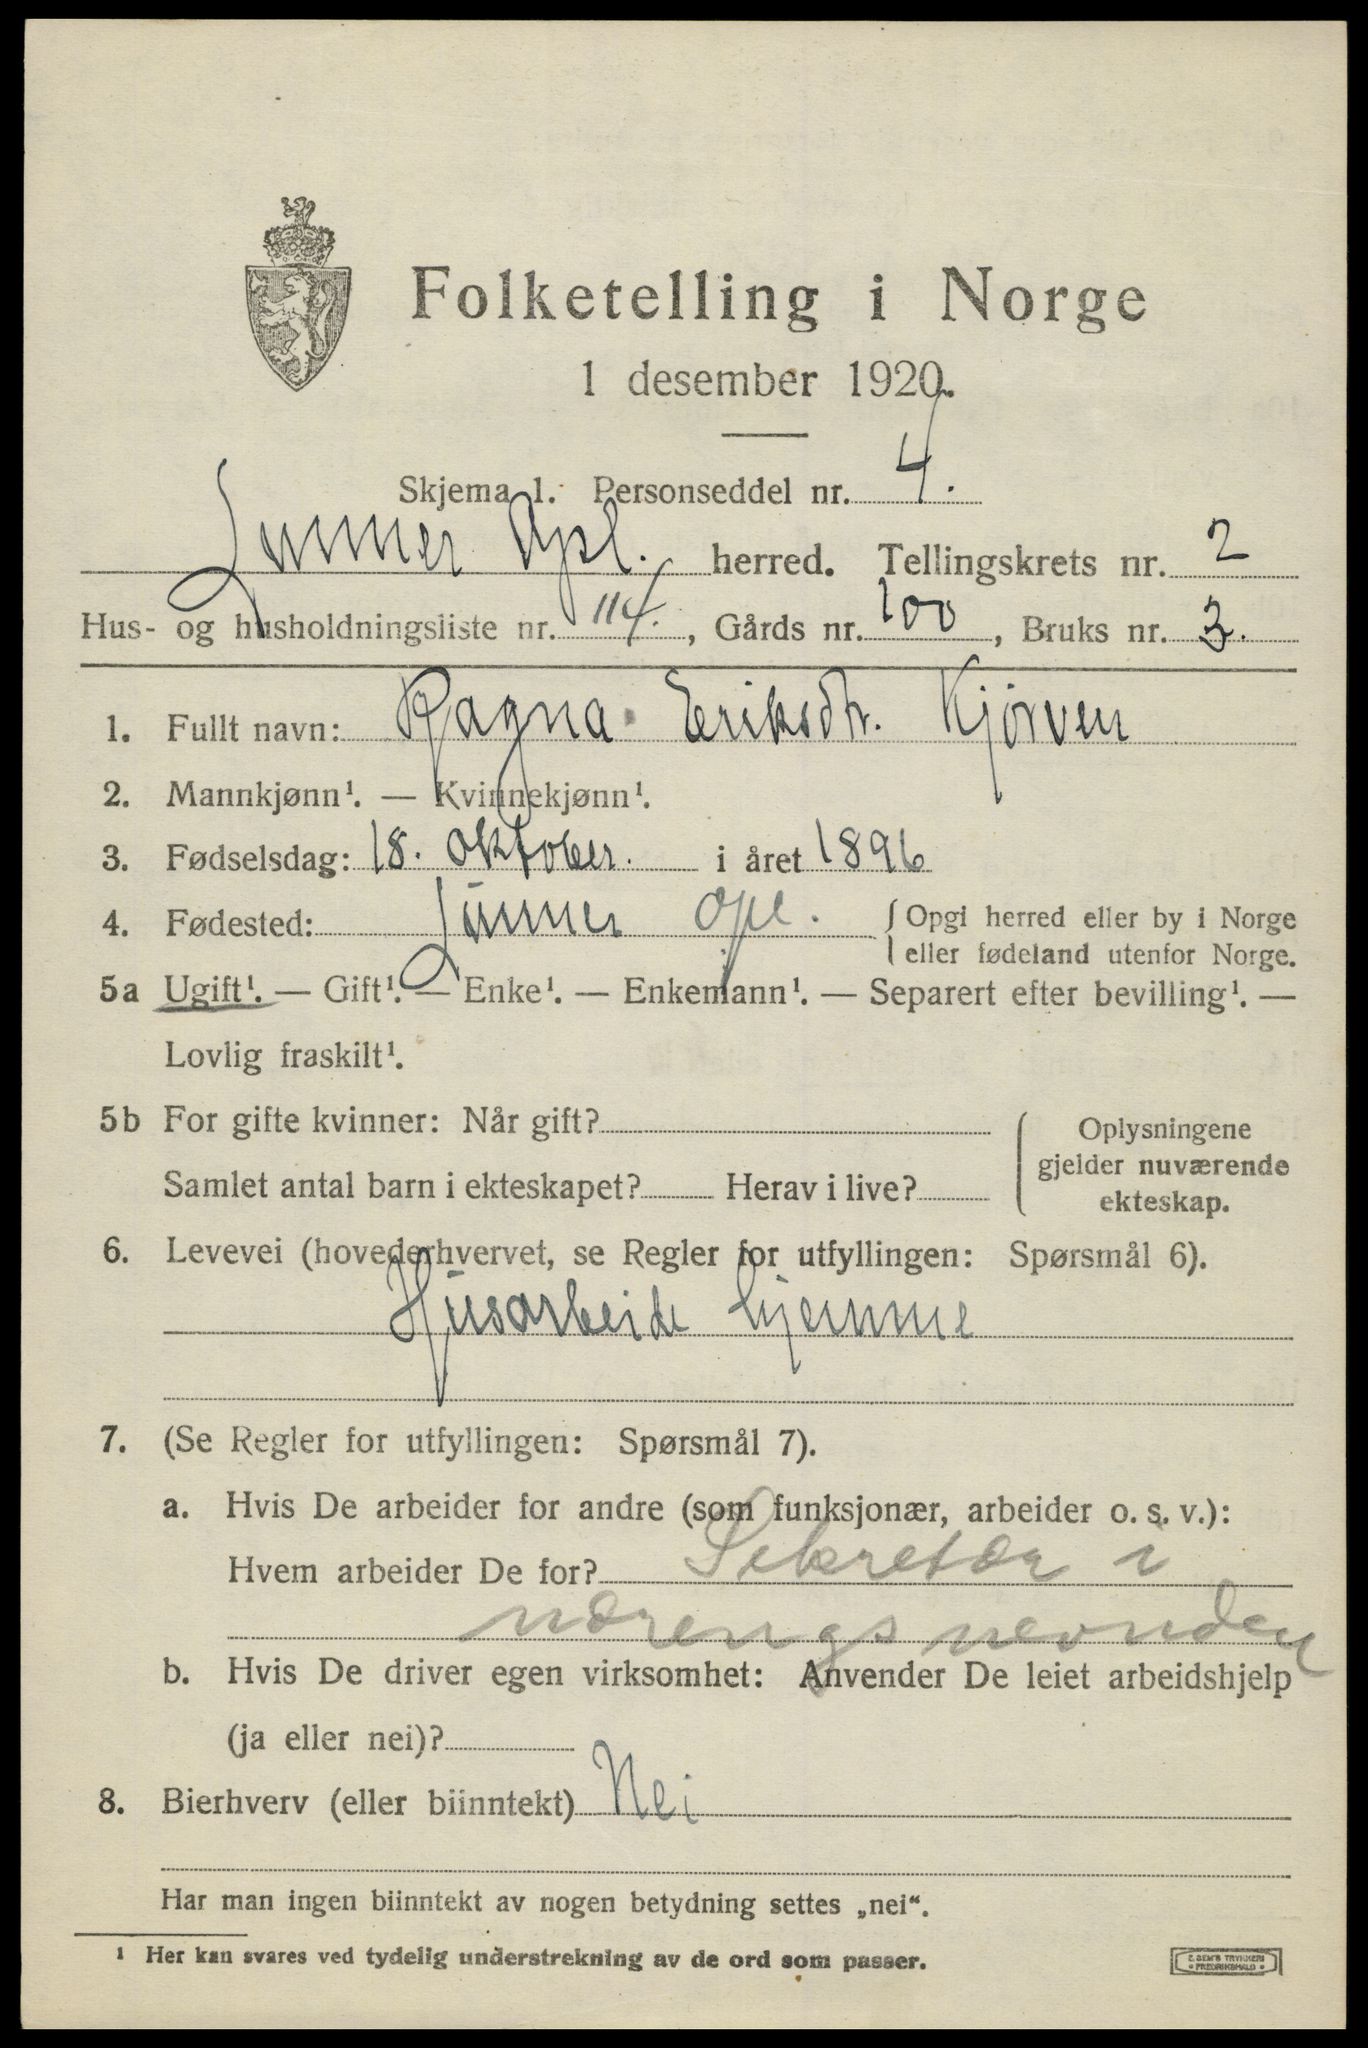 Folketelling i Norge
1 desember 1920.
Skjema 1. Personseddel nr. 4.
Lunner Opl. herred. Tellingskrets nr. 2
Hus- og husholdningsliste nr. 114., Gårds nr. 100, Bruks nr. 3.
1. Fullt navn: Ragna Eriksdtr. Kjørven
2. Mannkjønn¹. — Kvinnekjønn¹.
3. Fødselsdag: 18. oktober. i året 1896
4. Fødested: Lunner Opl. { Opgi herred eller by i Norge
eller fødeland utenfor Norge.
5a Ugift¹. — Gift¹. — Enke¹. — Enkemann¹. — Separert efter bevilling¹. —
Lovlig fraskilt¹.
5b For gifte kvinner: Når gift?
Samlet antal barn i ekteskapet? Herav i live?
Oplysningene
gjelder nuværende
ekteskap.
6. Levevei (hovederhvervet, se Regler for utfyllingen: Spørsmål 6).
Husarbeide hjemme
7. (Se Regler for utfyllingen: Spørsmål 7).
a. Hvis De arbeider for andre (som funksjonær, arbeider o. s. v.):
Hvem arbeider De for? Sekretær i
nærengsnevnden
b. Hvis De driver egen virksomhet: Anvender De leiet arbeidshjelp
(ja eller nei)?
8. Bierhverv (eller biinntekt) Nei
Har man ingen biinntekt av nogen betydning settes „nei“.
¹ Her kan svares ved tydelig understrekning av de ord som passer.
E. SEM'S TRYKKERI
FREDRIKSHALD